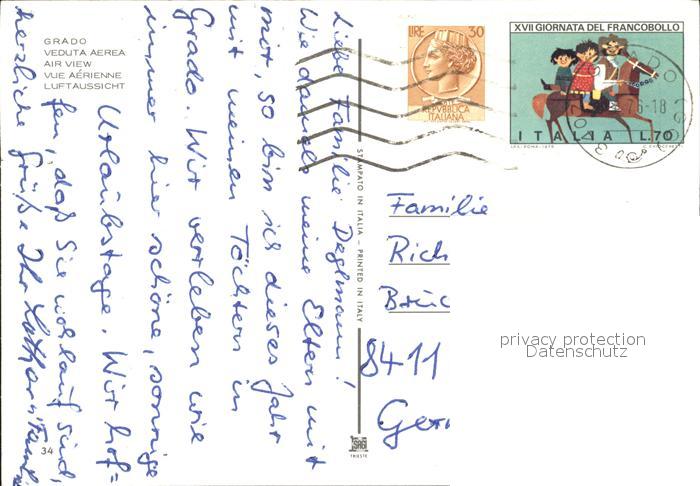 GRADO
VEDUTA AEREA
AIR VIEW
VUE AÉRIENNE
LUFTAUSSICHT
Liebe Familie Deglmann!
Wie damals meine Eltern mit
mir, so bin ich dieses Jahr
mit meinen Töchtern in
Grado. Wir verleben wie
immer hier schöne, sonnige
Urlaubstage. Wir hof=
fen, daß Sie wohlauf sind,
herzliche Grüße Ihr Lothar u.
34
STAMPATO IN ITALIA - PRINTED IN ITALY
SAGI
TRIESTE
LIRE 30
REPUBBLICA
ITALIANA
XVII GIORNATA DEL FRANCOBOLLO
ITALIA L.70
76-18
Familie
Rich
Brüc
8411
Ger
privacy protection
Datenschutz